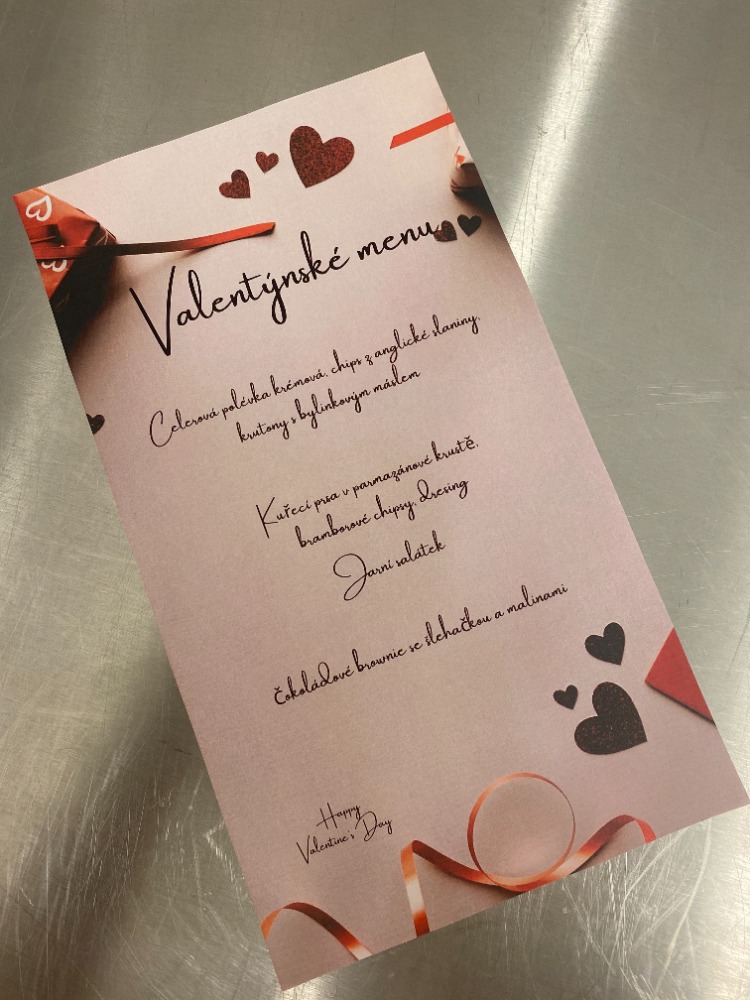 Valentýnské menu
Celerová polévka krémová, chips z anglické slaniny,
krutony s bylinkovým máslem
Kuřecí prsa v parmazánové krustě,
bramborové chipsy, dresing
Jarní salátek
čokoládové brownie se šlehačkou a malinami
Happy
Valentine's Day